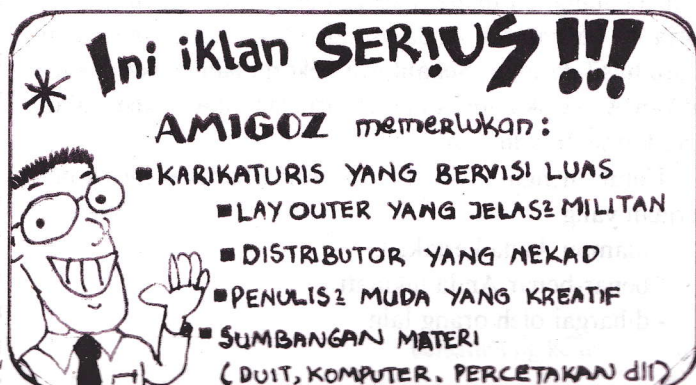 * Ini iklan SERIUS !!!
AMIGOZ memerlukan:
▪KARIKATURIS YANG BERVISI LUAS
▪LAY OUTER YANG JELAS2 MILITAN
▪DISTRIBUTOR YANG NEKAD
▪PENULIS2 MUDA YANG KREATIF
▪SUMBANGAN MATERI
(DUIT, KOMPUTER, PERCETAKAN dll)